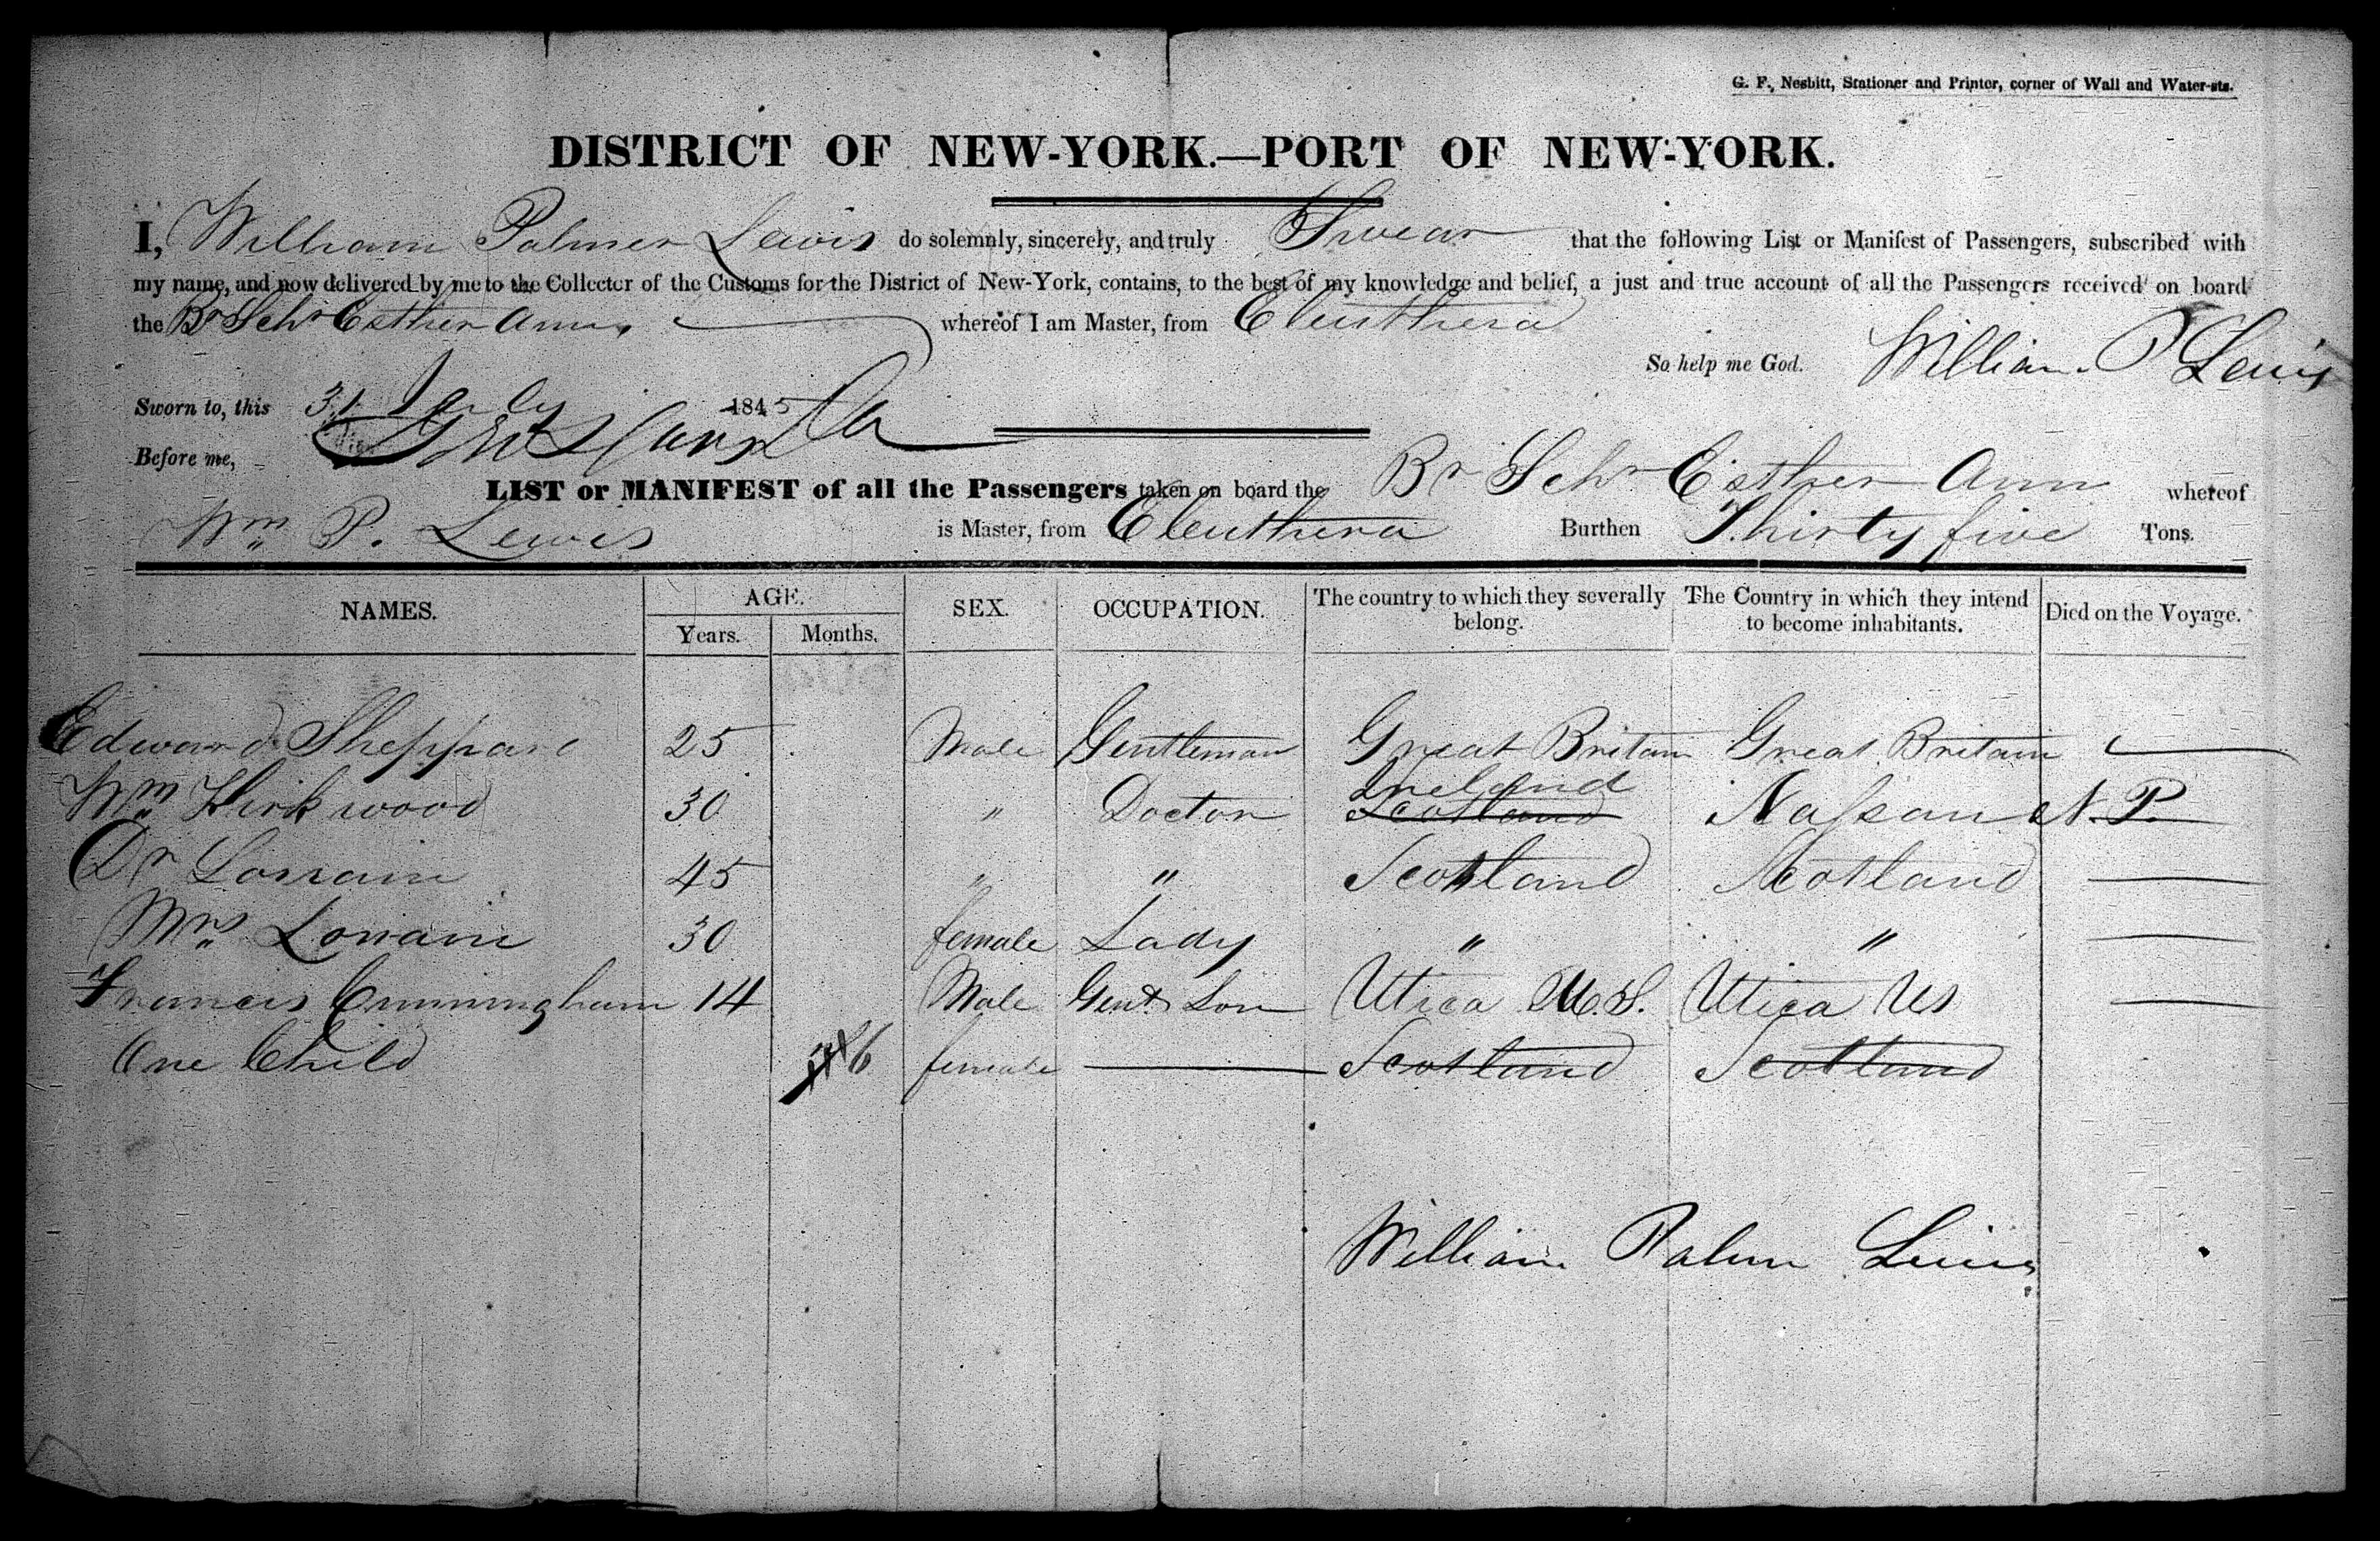 G. F. Nesbitt, Stationer and Printer, corner of Wall and Water-sts.
DISTRICT OF NEW-YORK.—PORT OF NEW-YORK.
I, William Palmer Lewis do solemnly, sincerely, and truly Swear that the following List or Manifest of Passengers, subscribed with
my name, and now delivered by me to the Collector of the Customs for the District of New-York, contains, to the best of my knowledge and belief, a just and true account of all the Passengers received on board
the Br Schr Esther Ann whereof I am Master, from Eleuthera
So help me God. William P Lewis
Sworn to, this 31 July 1845
Before me,
LIST or MANIFEST of all the Passengers taken on board the Br Schr Esther Ann whereof
Wm P. Lewis is Master, from Eleuthera Burthen Thirty five Tons.
NAMES. AGE. SEX. OCCUPATION. The country to which they severally belong. The Country in which they intend to become inhabitants. Died on the Voyage.
Years. Months.
Edward Sheppard 25 Male Gentleman Great Britain Great Britain
Wm Kirkwood 30 " Doctor Ireland Scotland Nassau N. P.
Dr Lorrain 45 " " Scotland Scotland
Mrs Lorrain 30 female Lady " "
Francis Cunningham 14 Male Gent Son Utica U.S. Utica US
One Child 6 female Scotland Scotland
William Palmer Lewis